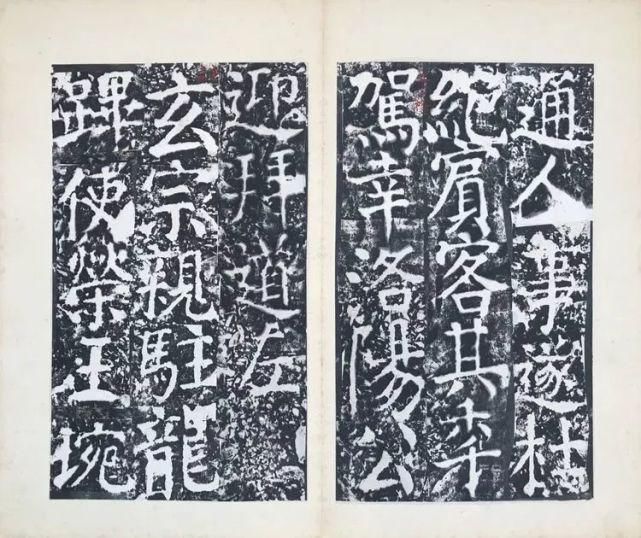 通人事遂杜
絶賓客其秊
駕幸洛陽公
迎拜道左
玄宗親駐龍
蹕使榮王琬